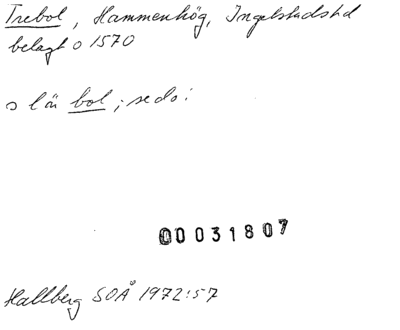 Trebol, Hammenhög, Ingelstads hd
belagt o 1570
o län bol; se do!
00031807
Hallberg SOÅ 1972:57